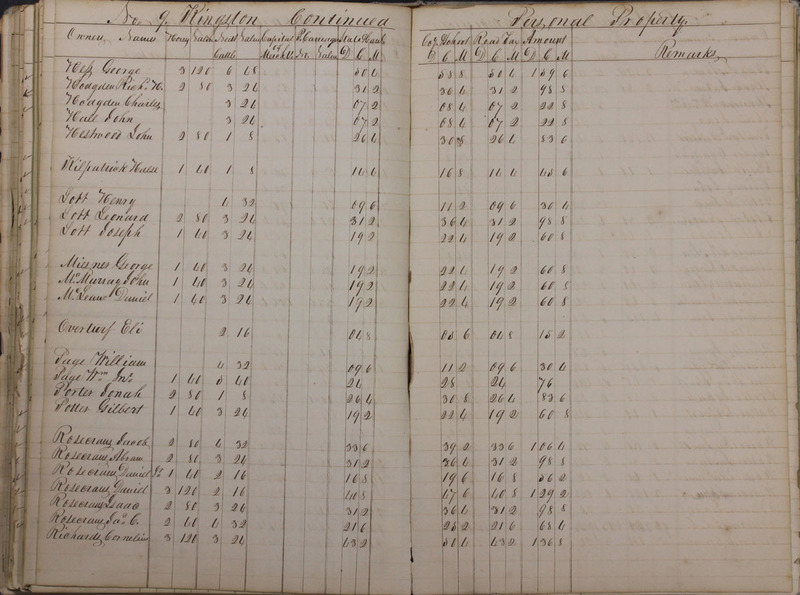 No. 9 Kingston Continued Personal Property
Owners Names Horses Value Neat Cattle Value Capital in Merch. P. Carriages No. Value State & Canl. Co. & School Road Tax Amount Remarks
D C M C M D C M D C M
Hess George 3 120 6 48 50 4 58 8 50 4 1 59 6
Hodgden Richd. H. 2 80 3 24 31 2 36 4 31 2 98 8
Hodgden Charles 3 24 07 2 08 4 07 2 22 8
Hall John 3 24 07 2 08 4 07 2 22 8
Hestwood John 2 80 1 8 26 4 30 8 26 4 83 6
Kilpatrick 1 40 1 8 14 4 16 8 14 4 45 6
Lott Henry 4 32 09 6 11 2 09 6 30 4
Lott Leonard 2 80 3 24 31 2 36 4 31 2 98 8
Lott Joseph 1 40 3 24 19 2 22 4 19 2 60 8
Miesner George 1 40 3 24 19 2 22 4 19 2 60 8
McMurray John 1 40 3 24 19 2 22 4 19 2 60 8
McLean Daniel 1 40 3 24 19 2 22 4 19 2 60 8
Overturf Eli 2 16 04 8 05 6 04 8 15 2
Page William 4 32 09 6 11 2 09 6 30 4
Page Wm. Jnr. 1 40 5 40 24 28 24 76
Porter Jonah 2 80 1 8 26 4 30 8 26 4 83 6
Potter Gilbert 1 40 3 24 19 2 22 4 19 2 60 8
Rosecrans Jacob 2 80 4 32 33 6 39 2 33 6 1 06 4
Rosecrans Abram 2 80 3 24 31 2 36 4 31 2 98 8
Rosecrans Daniel Jr. 1 40 2 16 16 8 19 6 16 8 56 2
Rosecrans Daniel 3 120 2 16 40 8 47 6 40 8 1 29 2
Rosecrans Isaac 2 80 3 24 31 2 36 4 31 2 98 8
Rosecrans Jas. C. 2 40 4 32 21 6 25 2 21 6 68 4
Richards Cornelius 3 120 3 24 43 2 50 4 43 2 1 36 8